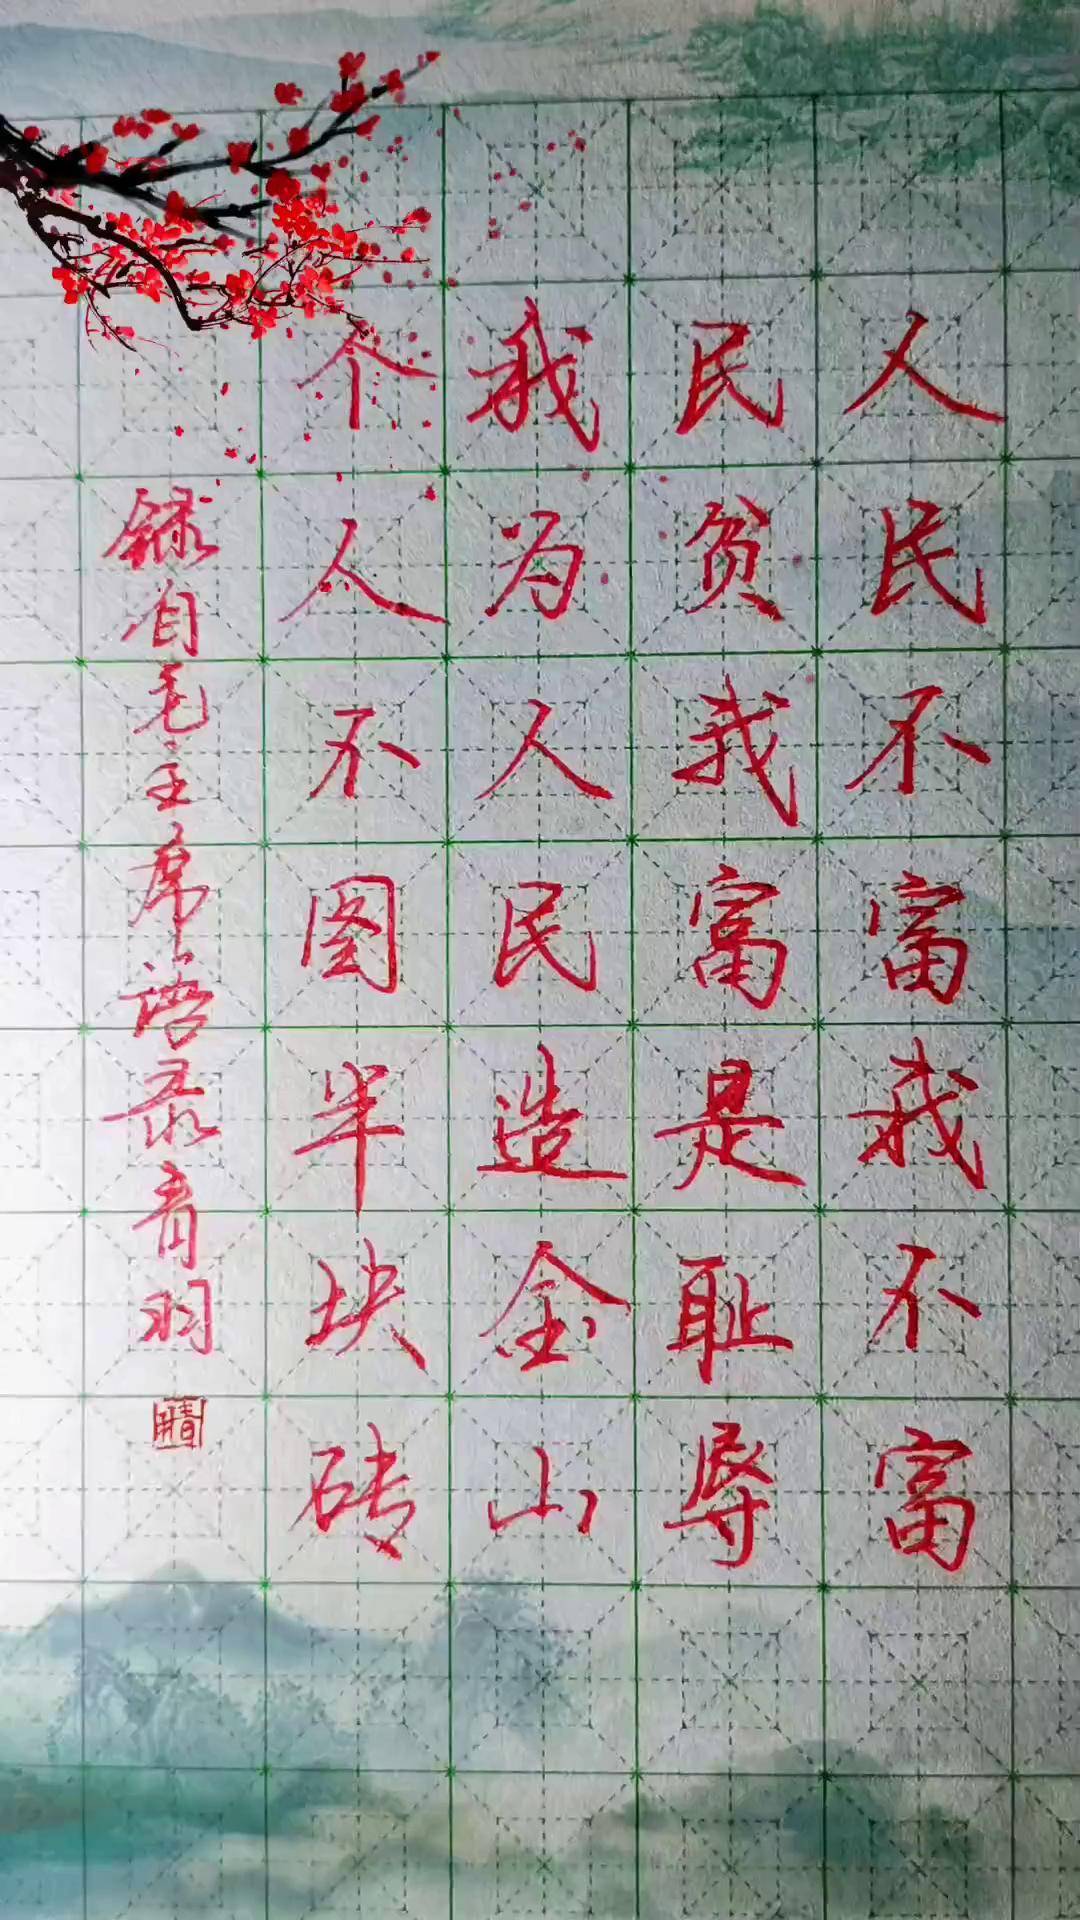 人民不富我不富
民贫我富是耻辱
我为人民造金山
个人不图半块砖
録自毛主席语录青羽